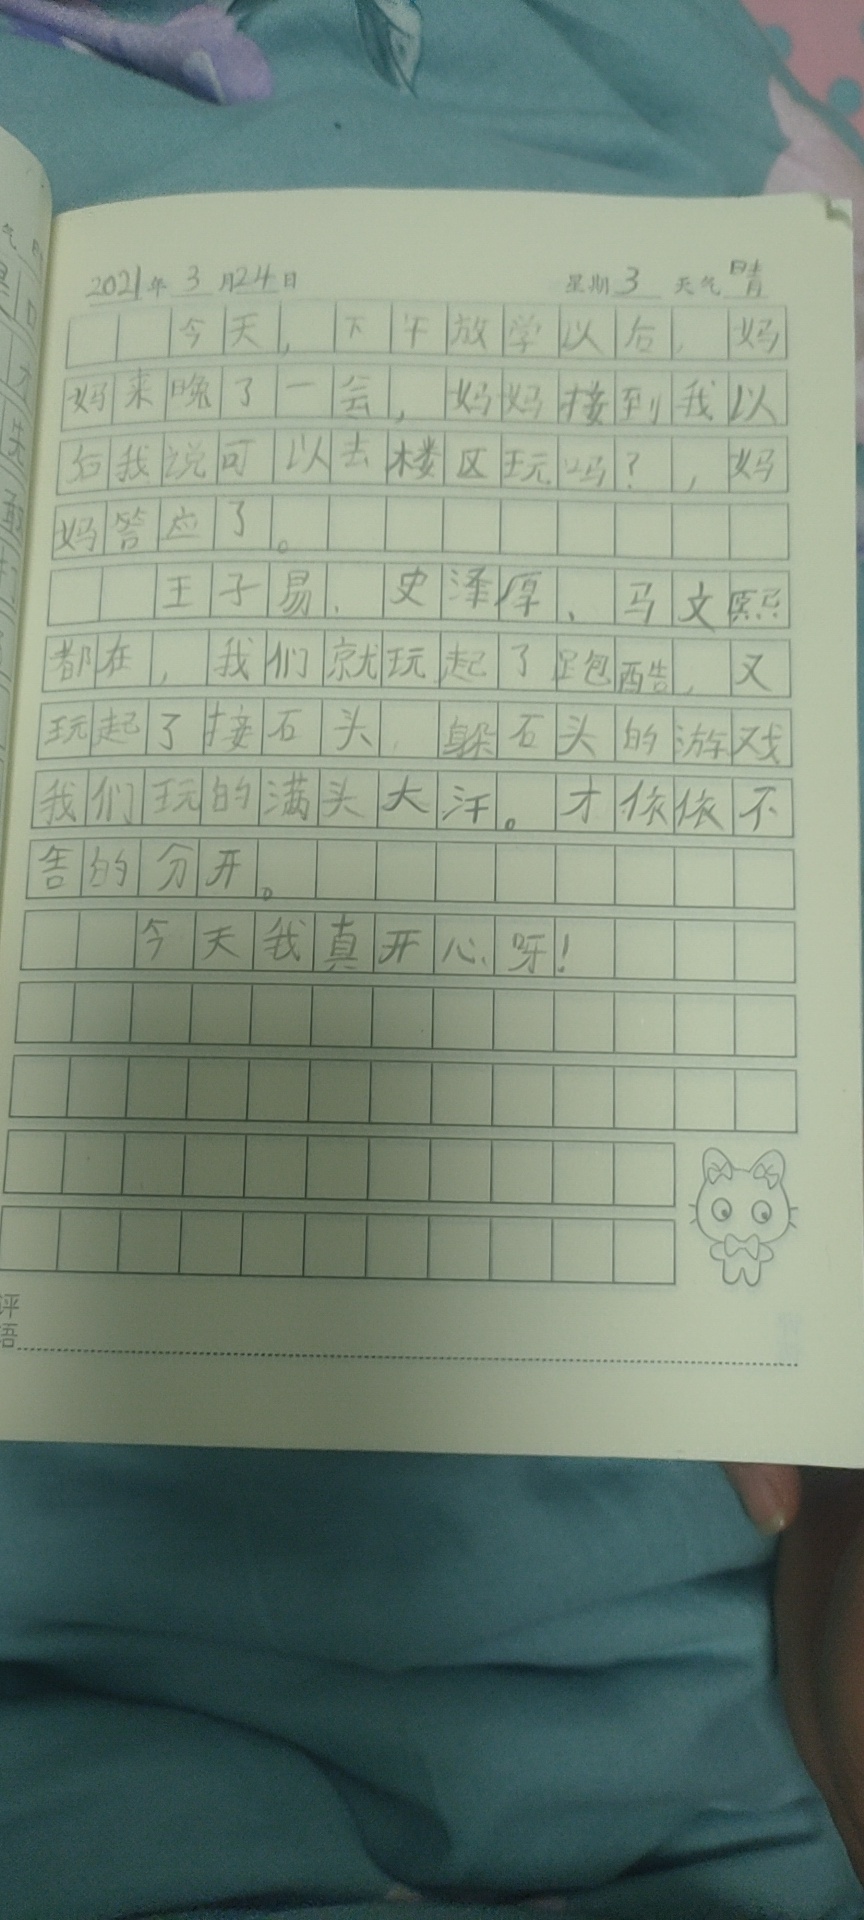 2021年3月24日 星期3 天气晴
今天,下午放学以后,妈
妈来晚了一会,妈妈接到我以
后我说可以去楼区玩吗?,妈
妈答应了。
王子易、史泽厚、马文熙
都在,我们就玩起了跑酷,又
玩起了接石头,躲石头的游戏
我们玩的满头大汗。才依依不
舍的分开。
今天我真开心呀!
评语